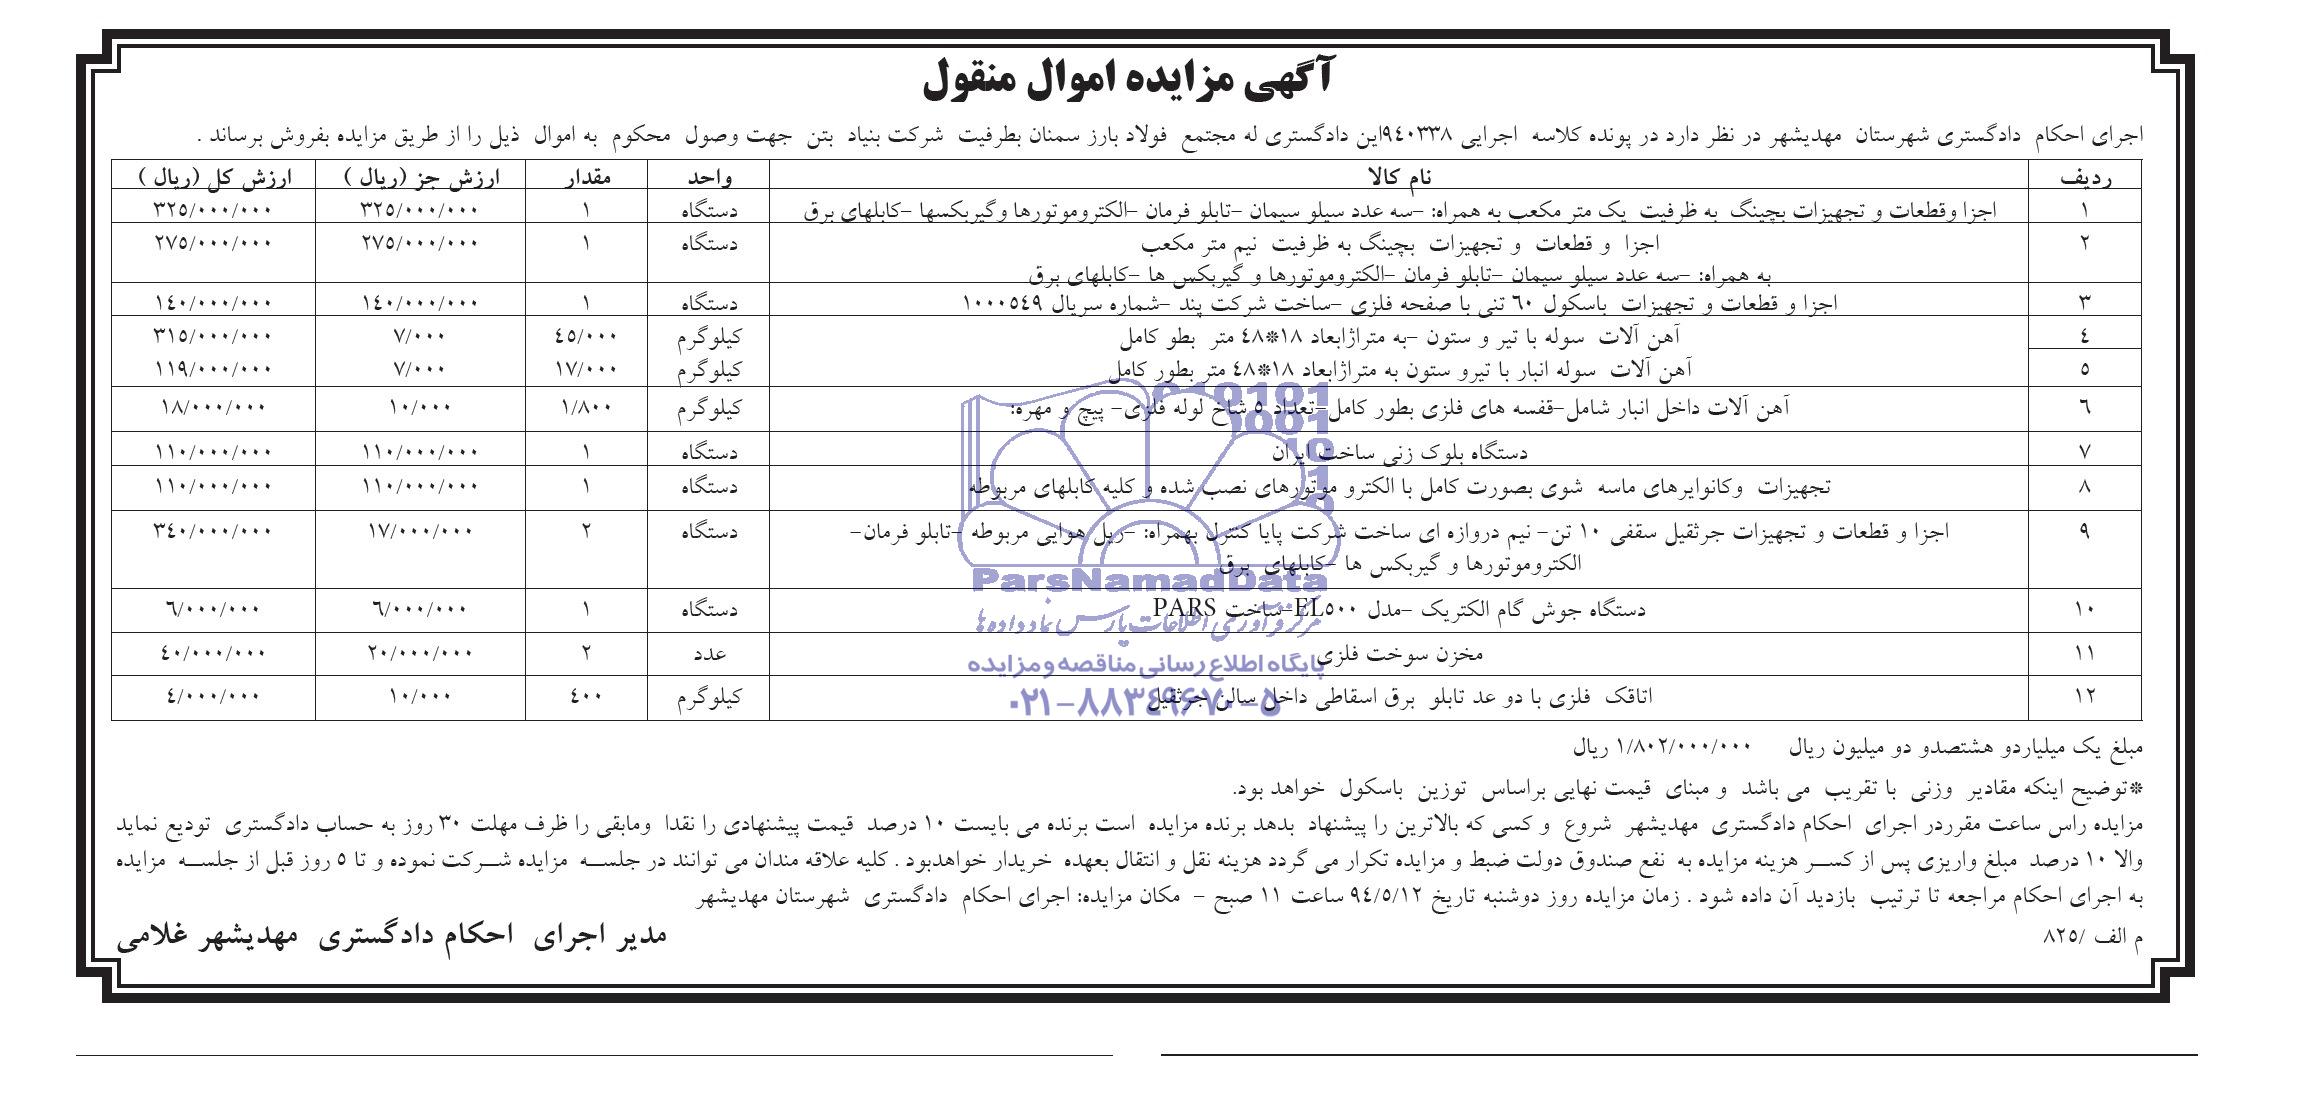 آگهی مزایده اموال منقول
اجرای احکام دادگستری شهرستان مهدیشهر در نظر دارد در پونده کلاسه اجرایی ۹٤۰۳۳۸این دادگستری له مجتمع فولاد بارز سمنان بطرفیت شرکت بنیاد بتن جهت وصول محکوم به اموال ذیل را از طریق مزایده بفروش برساند .
ردیف نام کالا واحد مقدار ارزش جز (ریال ) ارزش کل (ریال )
۱ اجزا وقطعات و تجهیزات بچینگ به ظرفیت یک متر مکعب به همراه: -سه عدد سیلو سیمان -تابلو فرمان -الکتروموتورها وگیربکسها -کابلهای برق دستگاه ۱ ۳۲۵/۰۰۰/۰۰۰ ۳۲۵/۰۰۰/۰۰۰
۲ اجزا و قطعات و تجهیزات بچینگ به ظرفیت نیم متر مکعب دستگاه ۱ ۲۷۵/۰۰۰/۰۰۰ ۲۷۵/۰۰۰/۰۰۰
به همراه: -سه عدد سیلو سیمان -تابلو فرمان -الکتروموتورها و گیربکس ها -کابلهای برق
۳ اجزا و قطعات و تجهیزات باسکول ٦۰ تنی با صفحه فلزی -ساخت شرکت پند -شماره سریال ۱۰۰۰۵٤۹ دستگاه ۱ ۱٤۰/۰۰۰/۰۰۰ ۱٤۰/۰۰۰/۰۰۰
٤ آهن آلات سوله با تیر و ستون -به متراژابعاد ۱۸*٤۸ متر بطو کامل کیلوگرم ٤۵/۰۰۰ ۷/۰۰۰ ۳۱۵/۰۰۰/۰۰۰
۵ آهن آلات سوله انبار با تیرو ستون به متراژابعاد ۱۸*٤۸ متر بطور کامل کیلوگرم ۱۷/۰۰۰ ۷/۰۰۰ ۱۱۹/۰۰۰/۰۰۰
٦ آهن آلات داخل انبار شامل-قفسه های فلزی بطور کامل-تعداد ۵ شاخ لوله فلزی- پیچ و مهره: کیلوگرم ۱/۸۰۰ ۱۰/۰۰۰ ۱۸/۰۰۰/۰۰۰
۷ دستگاه بلوک زنی ساخت ایران دستگاه ۱ ۱۱۰/۰۰۰/۰۰۰ ۱۱۰/۰۰۰/۰۰۰
۸ تجهیزات وکانوایرهای ماسه شوی بصورت کامل با الکترو موتورهای نصب شده و کلیه کابلهای مربوطه دستگاه ۱ ۱۱۰/۰۰۰/۰۰۰ ۱۱۰/۰۰۰/۰۰۰
۹ اجزا و قطعات و تجهیزات جرثقیل سقفی ۱۰ تن- نیم دروازه ای ساخت شرکت پایا کنترل بهمراه: -ریل هوایی مربوطه -تابلو فرمان- دستگاه ۲ ۱۷/۰۰۰/۰۰۰ ۳٤۰/۰۰۰/۰۰۰
الکتروموتورها و گیربکس ها -کابلهای برق
۱۰ دستگاه جوش گام الکتریک -مدل EL۵۰۰-ساخت PARS دستگاه ۱ ٦/۰۰۰/۰۰۰ ٦/۰۰۰/۰۰۰
۱۱ مخزن سوخت فلزی عدد ۲ ۲۰/۰۰۰/۰۰۰ ٤۰/۰۰۰/۰۰۰
۱۲ اتاقک فلزی با دو عد تابلو برق اسقاطی داخل سالن جرثقیل کیلوگرم ٤۰۰ ۱۰/۰۰۰ ٤/۰۰۰/۰۰۰
ParsNamadData
مرکز فرآوری اطلاعات پارس نماد داده ها
پایگاه اطلاع رسانی مناقصه و مزایده
۰۲۱-۸۸۳۴۹۶۷۰-۵
مبلغ یک میلیاردو هشتصدو دو میلیون ریال ۱/۸۰۲/۰۰۰/۰۰۰ ریال
*توضیح اینکه مقادیر وزنی با تقریب می باشد و مبنای قیمت نهایی براساس توزین باسکول خواهد بود.
مزایده راس ساعت مقرردر اجرای احکام دادگستری مهدیشهر شروع و کسی که بالاترین را پیشنهاد بدهد برنده مزایده است برنده می بایست ۱۰ درصد قیمت پیشنهادی را نقدا ومابقی را ظرف مهلت ۳۰ روز به حساب دادگستری تودیع نماید
والا ۱۰ درصد مبلغ واریزی پس از کسر هزینه مزایده به نفع صندوق دولت ضبط و مزایده تکرار می گردد هزینه نقل و انتقال بعهده خریدار خواهدبود . کلیه علاقه مندان می توانند در جلسه مزایده شرکت نموده و تا ۵ روز قبل از جلسه مزایده
به اجرای احکام مراجعه تا ترتیب بازدید آن داده شود . زمان مزایده روز دوشنبه تاریخ ۹٤/۵/۱۲ ساعت ۱۱ صبح - مکان مزایده: اجرای احکام دادگستری شهرستان مهدیشهر
م الف /۸۲۵ مدیر اجرای احکام دادگستری مهدیشهر غلامی